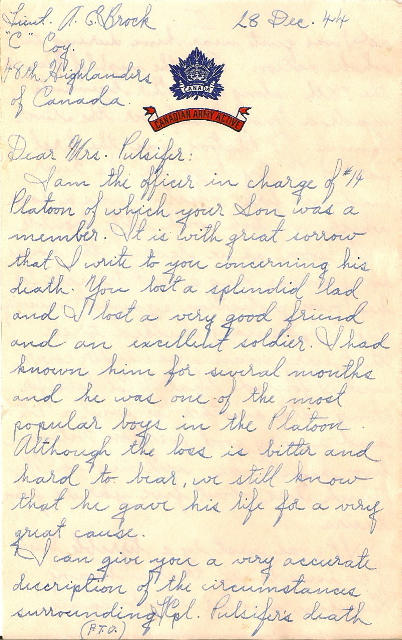 Lieut. A. E. Brock 28 Dec. 44
"C" Coy.
48th Highlanders
of Canada.
CANADA
CANADIAN ARMY ACTIVE
Dear Mrs. Pulsifer:
I am the officer in charge of #14
Platoon of which your Son was a
member. It is with great sorrow
that I write to you concerning his
death. You lost a splendid lad
and I lost a very good friend
and an excellent soldier. I had
known him for several months
and he was one of the most
popular boys in the Platoon.
Although the loss is bitter and
hard to bear, we still know
that he gave his life for a very
great cause.
I can give you a very accurate
decription of the circumstances
surrounding Cpl. Pulsifer's death
(P.T.O.)